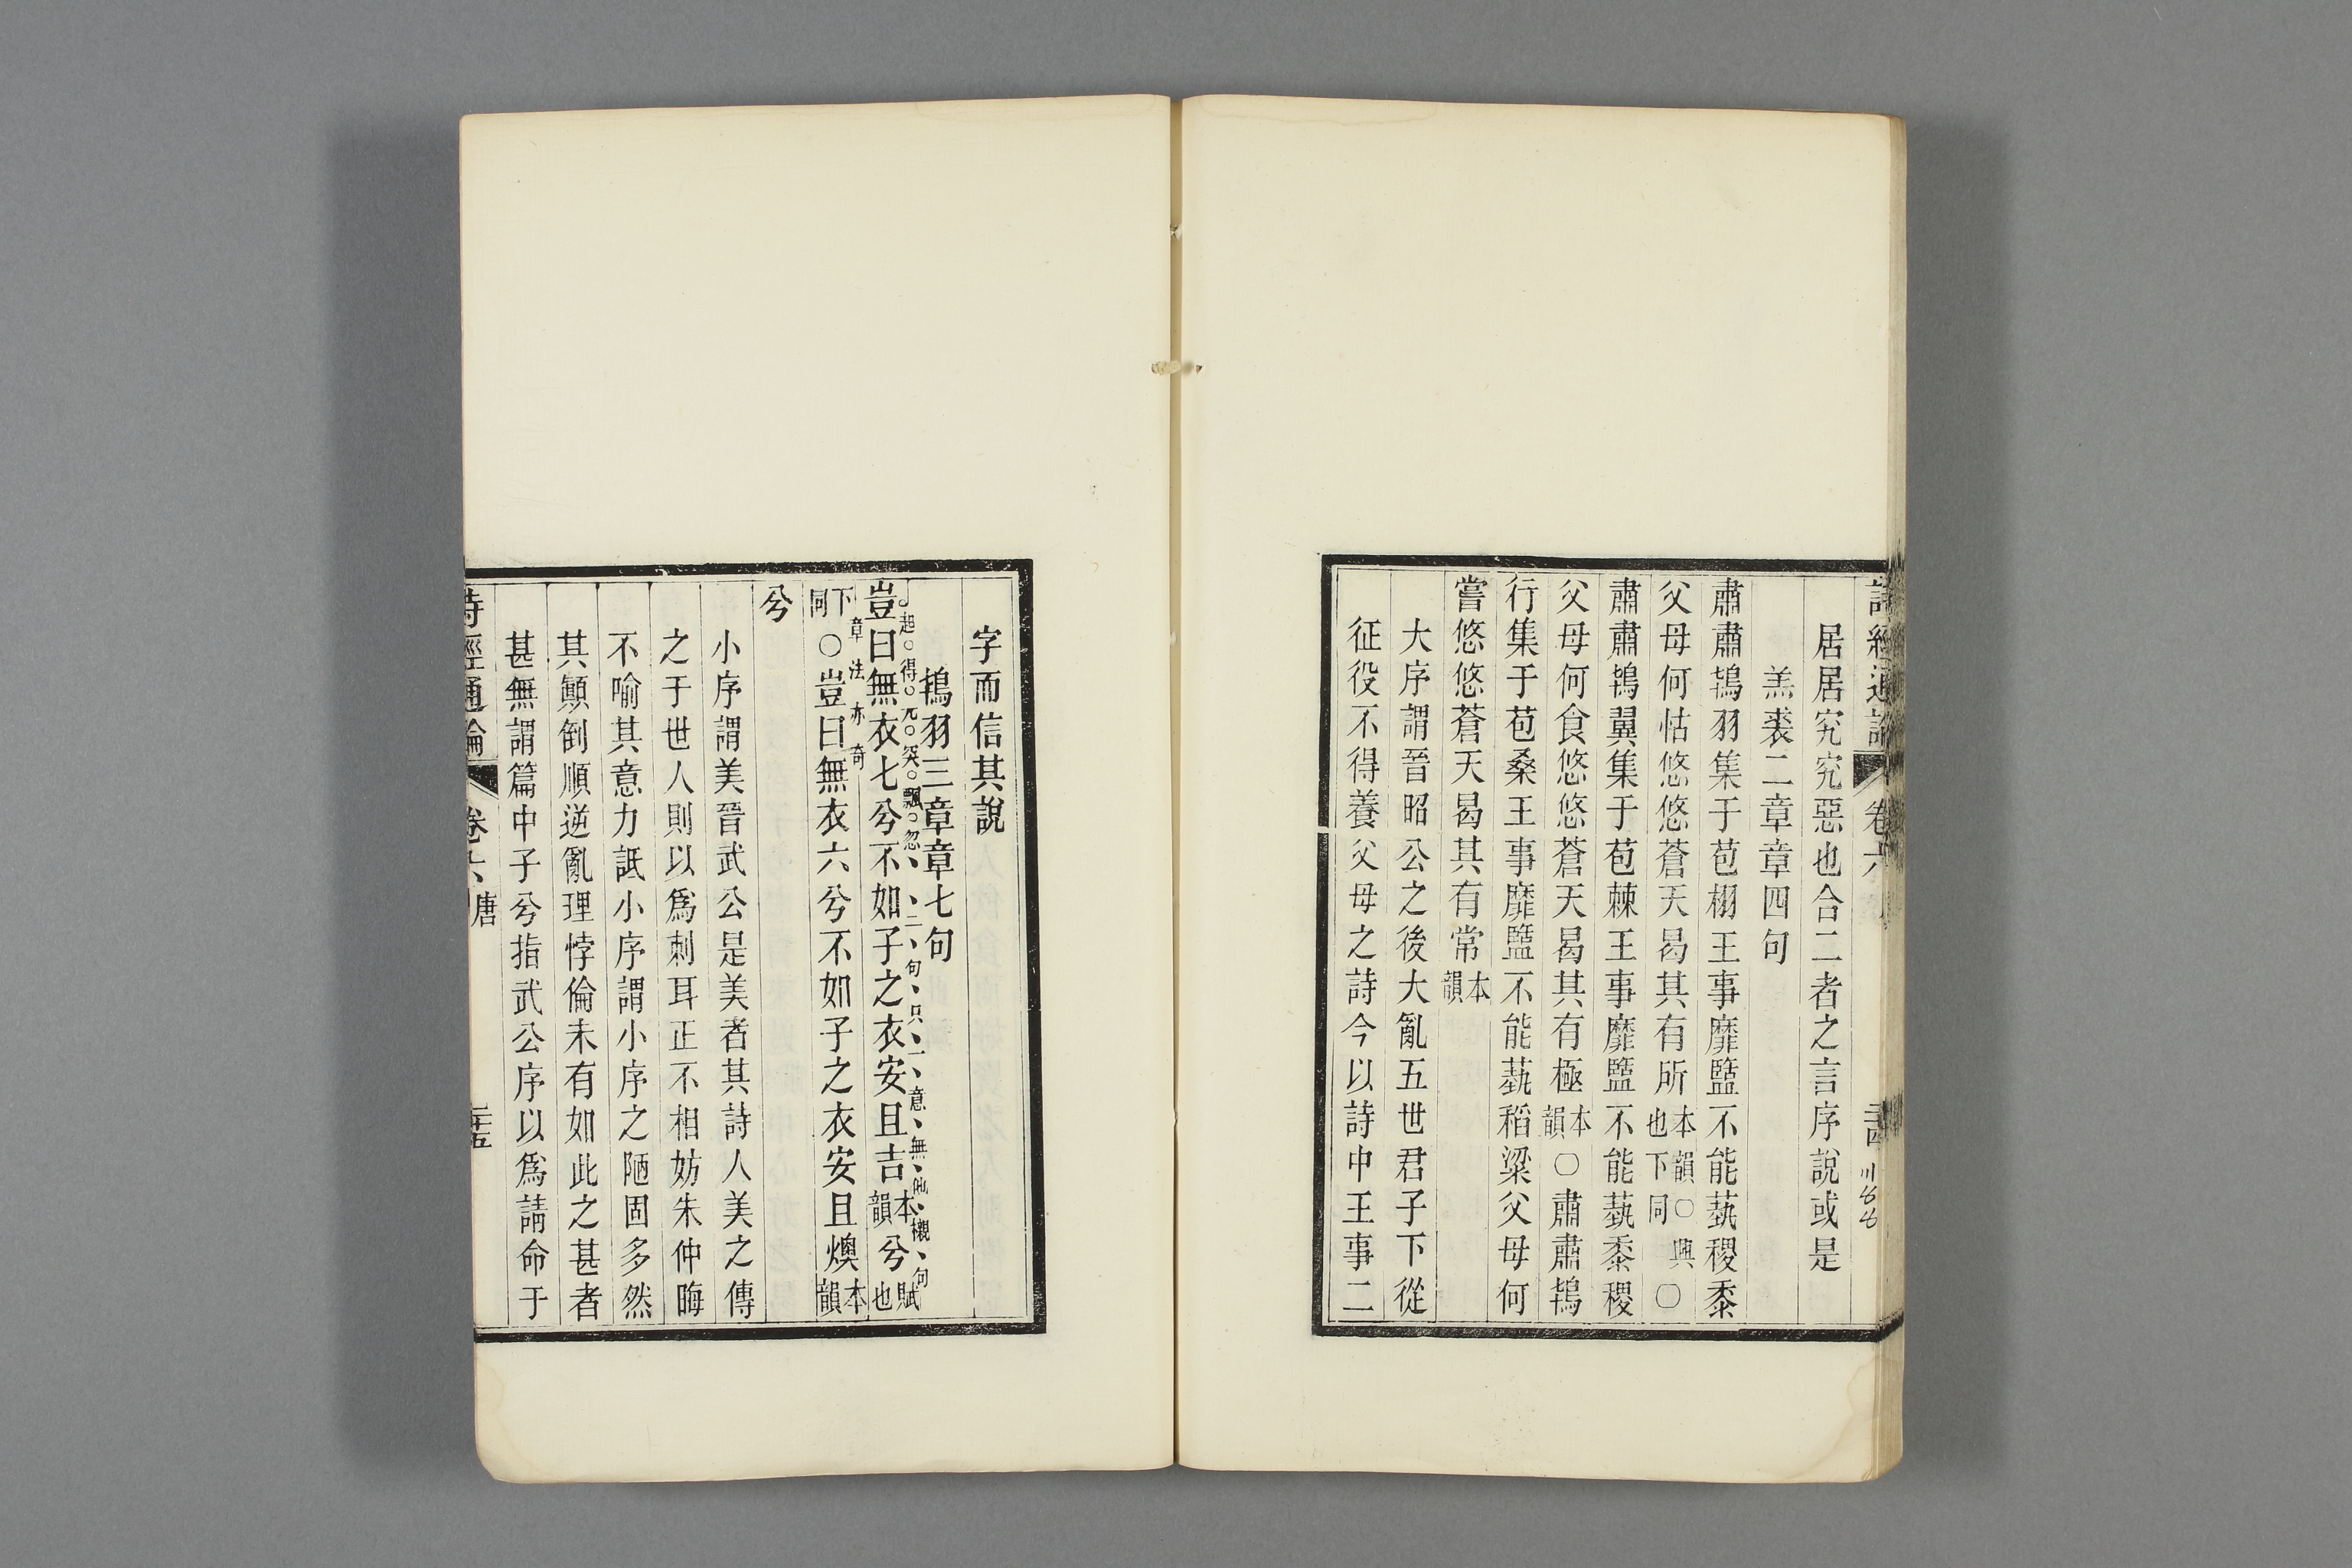 詩經通論 卷六 三十四
居居究究惡也合二者之言序說或是
羔裘二章章四句
肅肅鴇羽集于苞栩王事靡盬不能蓺稷黍
父母何怙悠悠蒼天曷其有所本韻○興○也下同
肅肅鴇翼集于苞棘王事靡盬不能蓺黍稷
父母何食悠悠蒼天曷其有極本韻○肅肅鴇
行集于苞桑王事靡盬不能蓺稻粱父母何
嘗悠悠蒼天曷其有常本韻
大序謂晉昭公之後大亂五世君子下從
征役不得養父母之詩今以詩中王事二
字而信其說
鴇羽三章章七句
起得兀突飄忽二句只一意無他襯句
豈曰無衣七兮不如子之衣安且吉本韻兮賦也
章法亦奇
下同○豈曰無衣六兮不如子之衣安且燠本韻
兮
小序謂美晉武公是美者其詩人美之傳
之于世人則以爲刺耳正不相妨朱仲晦
不喻其意力詆小序謂小序之陋固多然
其顚倒順逆亂理悖倫未有如此之甚者
甚無謂篇中子兮指武公序以爲請命于
詩經通論 卷六 唐 三十五